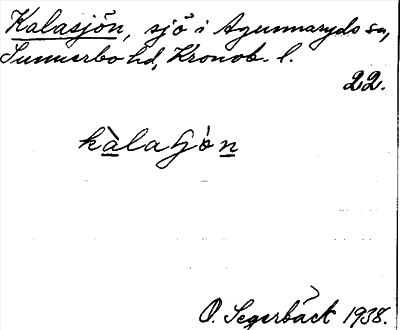 Kalasjön, sjö i Agunnaryds sn,
Sunnerbo hd, Kronob. l.
22.
kàlaʃón
O. Segerbäck 1938.